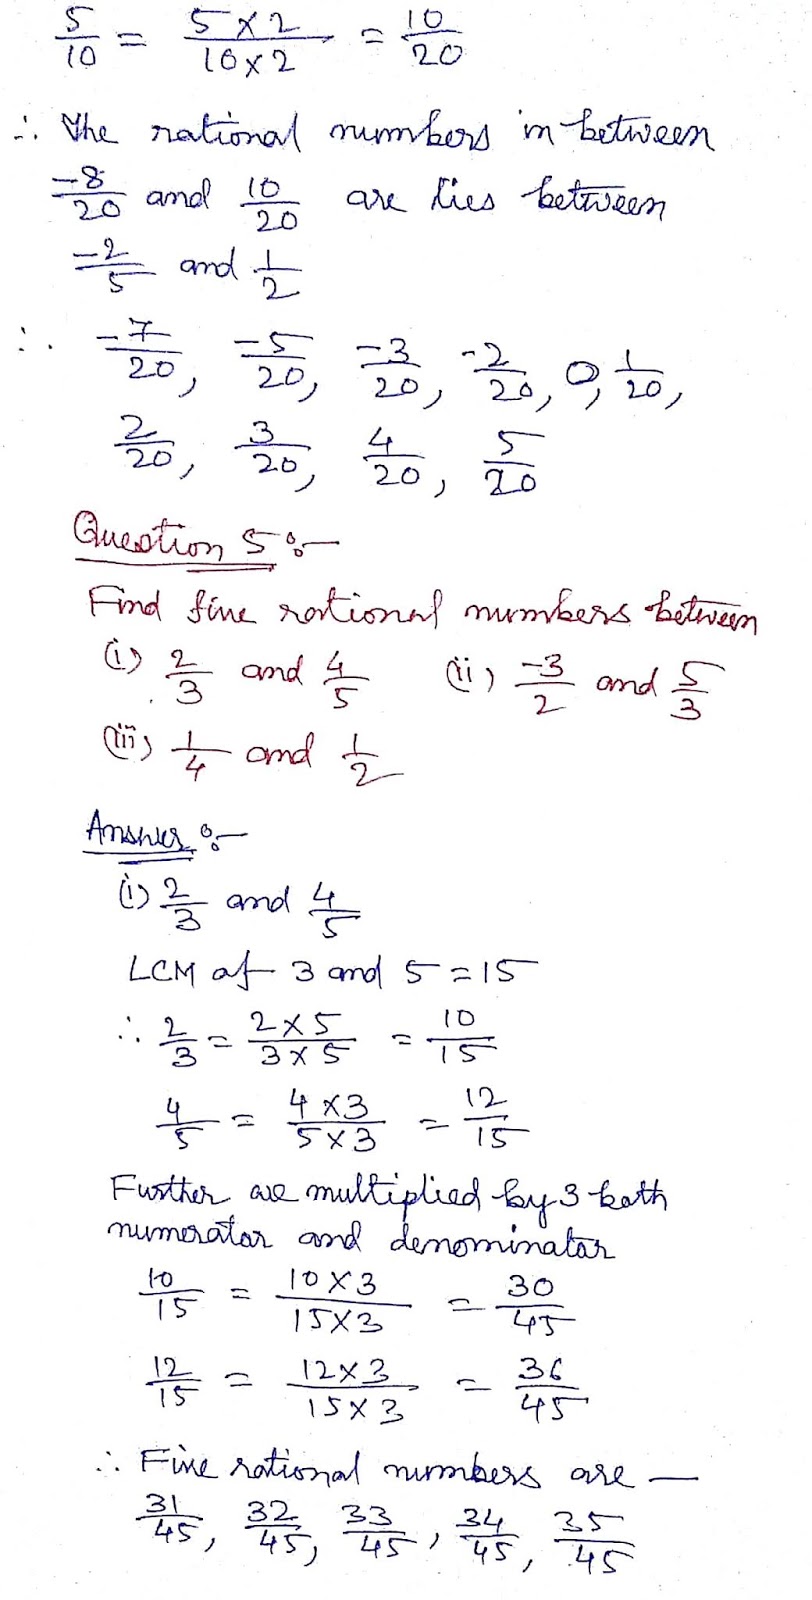 5/10 = 5 × 2 / 10 × 2 = 10/20
∴ The rational numbers in between
-8/20 and 10/20 are lies between
-2/5 and 1/2
∴ -7/20, -5/20, -3/20, -2/20, 0, 1/20,
2/20, 3/20, 4/20, 5/20
Question 5:-
Find five rational numbers between
(i) 2/3 and 4/5 (ii) -3/2 and 5/3
(iii) 1/4 and 1/2
Answer:-
(i) 2/3 and 4/5
LCM of 3 and 5 = 15
∴ 2/3 = 2 × 5 / 3 × 5 = 10/15
4/5 = 4 × 3 / 5 × 3 = 12/15
Further are multiplied by 3 both
numerator and denominator
10/15 = 10 × 3 / 15 × 3 = 30/45
12/15 = 12 × 3 / 15 × 3 = 36/45
∴ Five rational numbers are —
31/45, 32/45, 33/45, 34/45, 35/45